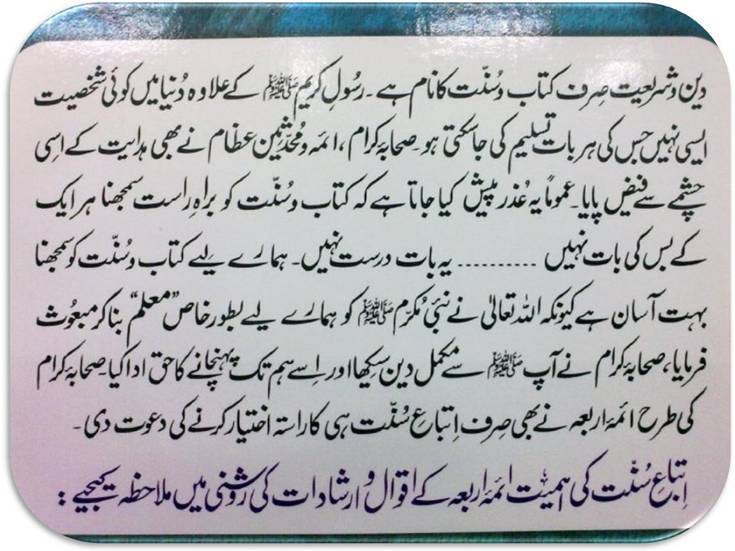 دین و شریعت صِرف کتاب و سُنّت کا نام ہے۔ رسُولِ کریم ﷺ کے علاوہ دُنیا میں کوئی شخصیت
ایسی نہیں جس کی ہر بات تسلیم کی جا سکتی ہو۔ صحابۂ کرام، ائمہ و محدّثینِ عظام نے بھی ہدایت کے اسی
چشمے سے فیض پایا۔ عموماً یہ عُذر پیش کیا جاتا ہے کہ کتاب و سُنّت کو براہِ راست سمجھنا ہر ایک
کے بس کی بات نہیں .......... یہ بات درست نہیں۔ ہمارے لیے کتاب و سُنّت کو سمجھنا
بہت آسان ہے کیونکہ اللہ تعالیٰ نے نبیٔ مُکرّم ﷺ کو ہمارے لیے بطورِ خاص ”معلم“ بنا کر مبعُوث
فرمایا، صحابۂ کرام نے آپ ﷺ سے مکمل دین سیکھا اور اِسے ہم تک پہنچانے کا حق ادا کیا۔ صحابۂ کرام
کی طرح ائمۂ اربعہ نے بھی صِرف اِتباعِ سُنّت ہی کا راستہ اختیار کرنے کی دعوت دی۔
اِتباعِ سُنّت کی اہمیّت ائمۂ اربعہ کے اقوال و ارشادات کی روشنی میں ملاحظہ کیجیے :